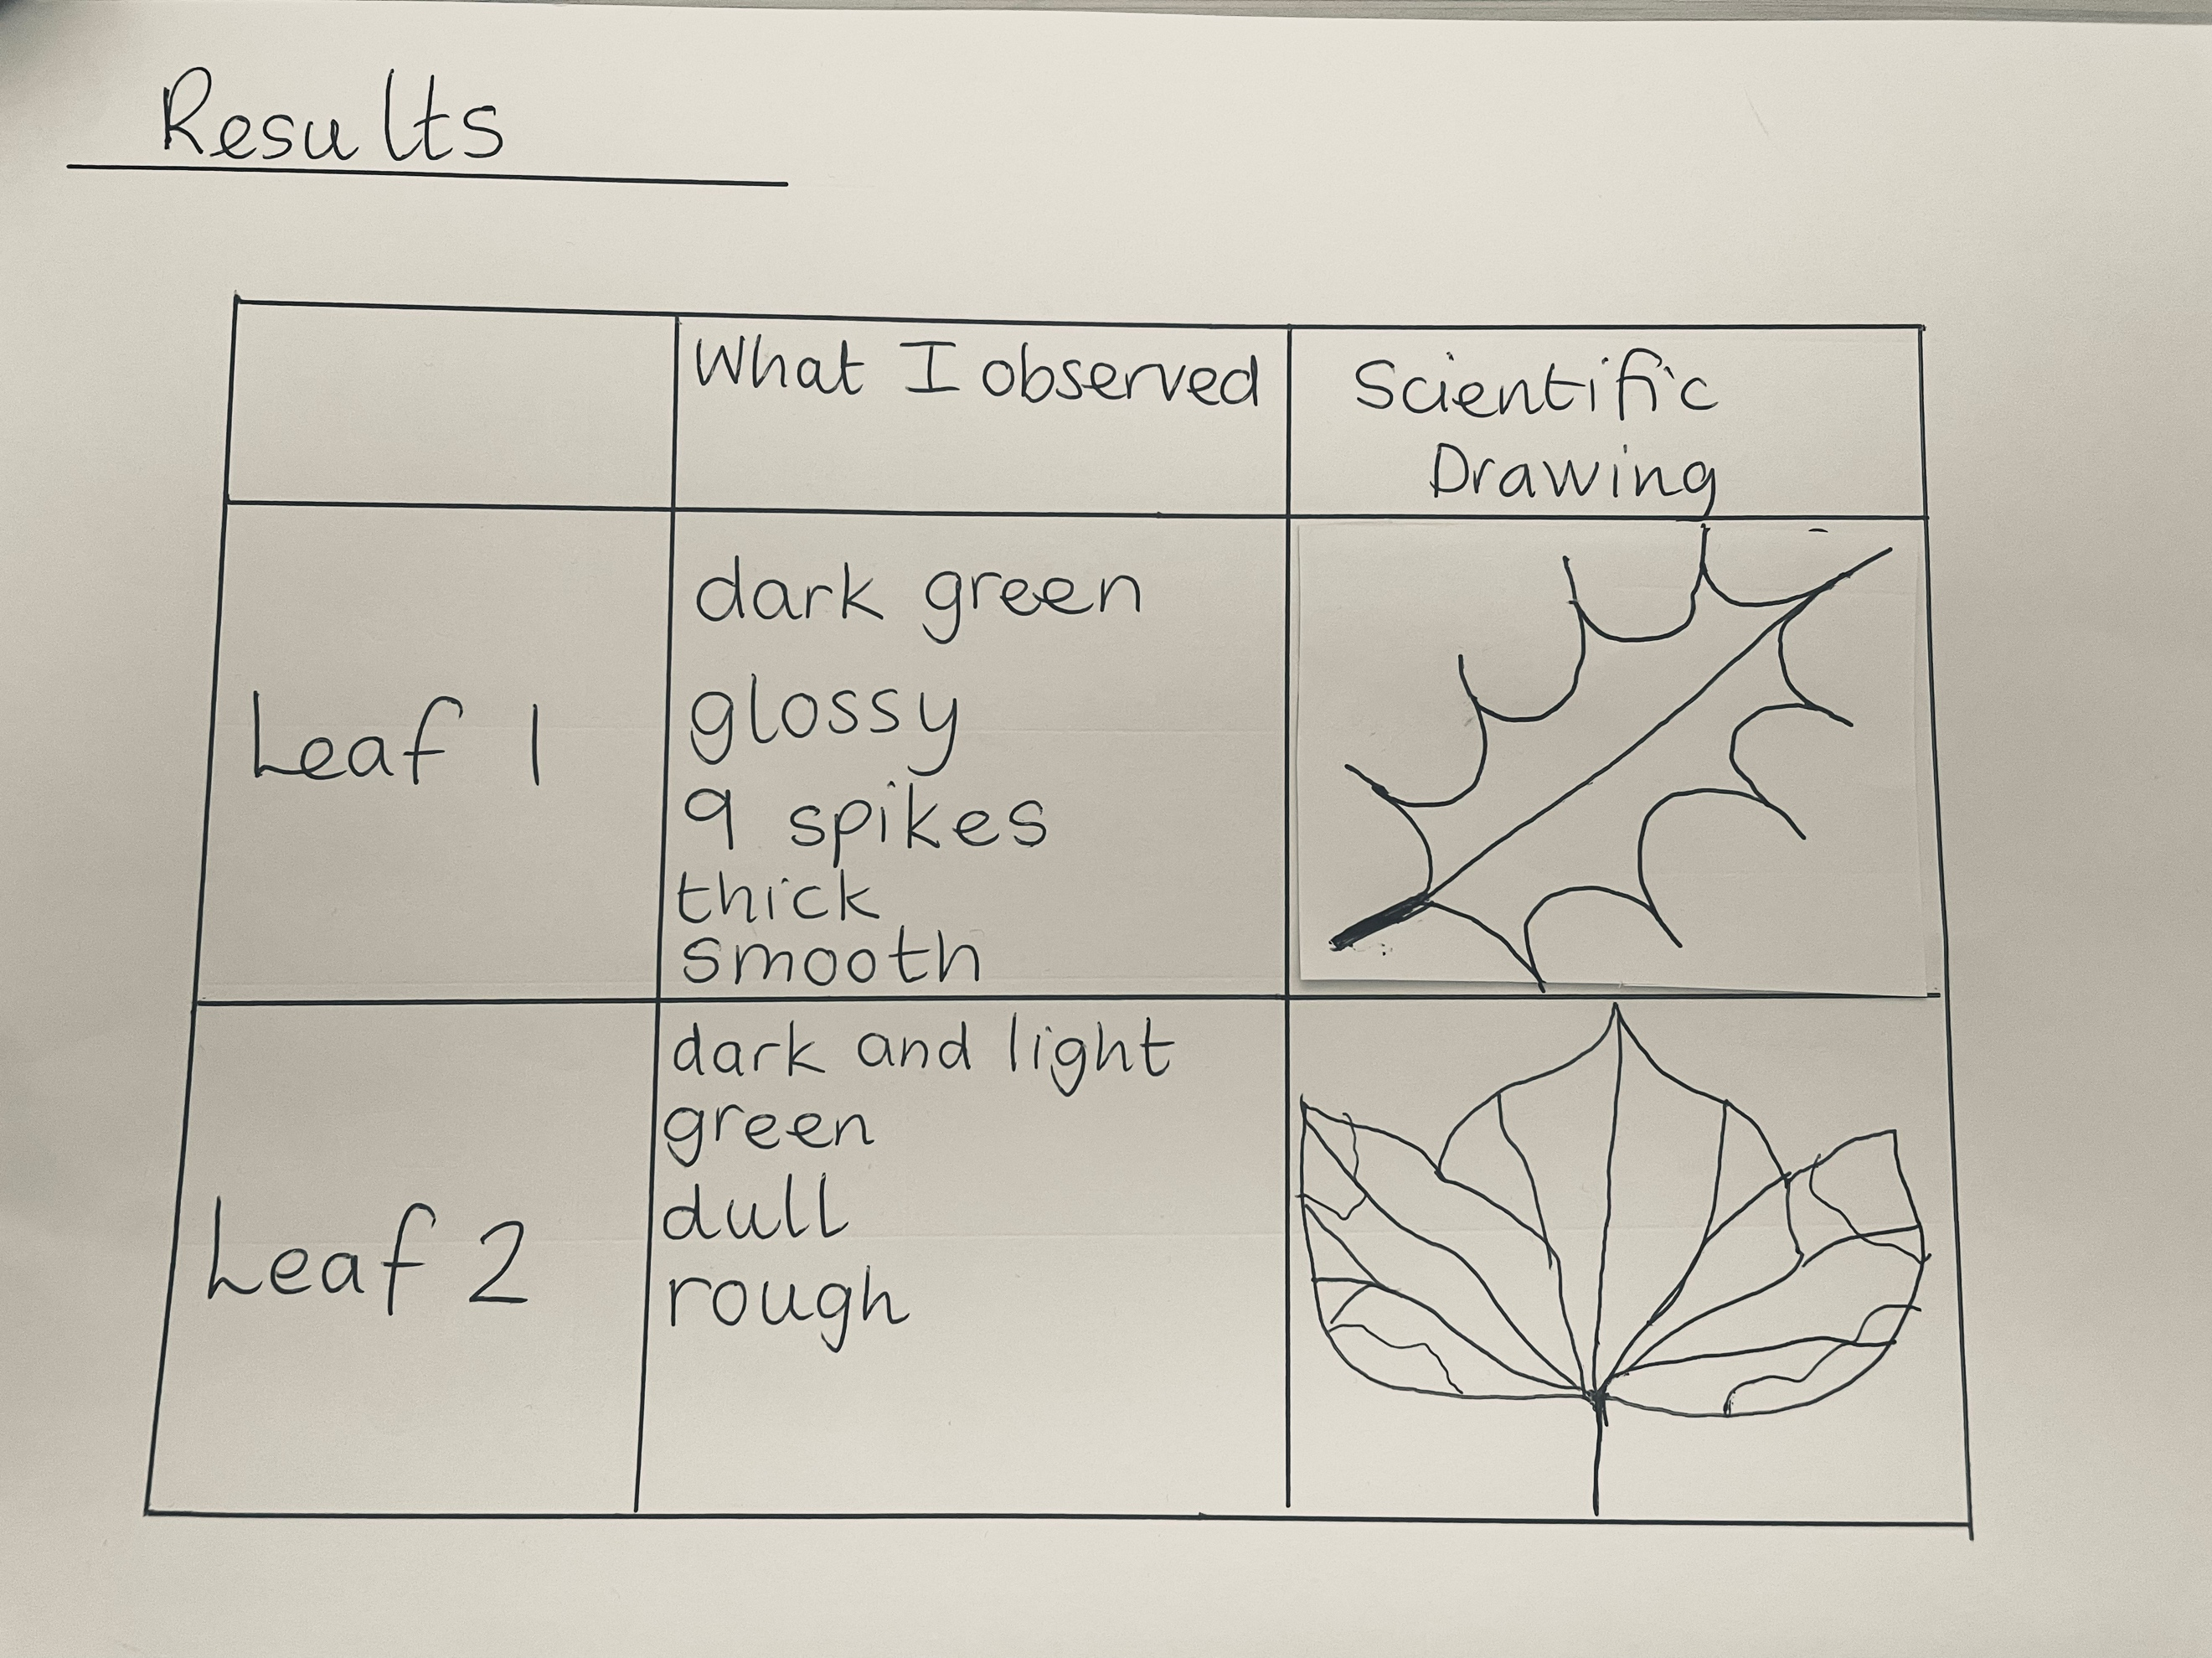 Results
What I observed
Scientific
Drawing
Leaf 1
dark green
glossy
9 spikes
thick
smooth
Leaf 2
dark and light
green
dull
rough